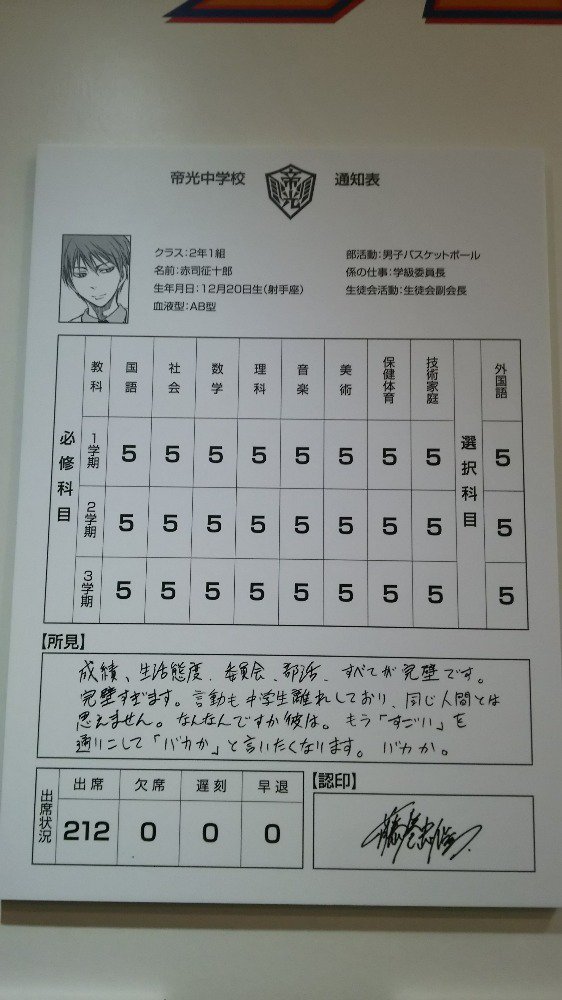 帝光中学校
帝光
通知表
クラス:2年1組
名前:赤司征十郎
生年月日:12月20日生(射手座)
血液型:AB型
部活動:男子バスケットボール
係の仕事:学級委員長
生徒会活動:生徒会副会長
教科 国語 社会 数学 理科 音楽 美術 保健体育 技術家庭 外国語
必修科目
選択科目
1学期 5 5 5 5 5 5 5 5 5
2学期 5 5 5 5 5 5 5 5 5
3学期 5 5 5 5 5 5 5 5 5
【所見】
成績、生活態度、委員会、部活、すべてが完璧です。
完璧すぎます。言動も中学生離れしており、同じ人間とは
思えません。なんなんですか彼は。もう「すごい」を
通りこして「バカか」と言いたくなります。バカか。
出席状況
出席 欠席 遅刻 早退
212 0 0 0
【認印】
藤巻忠俊